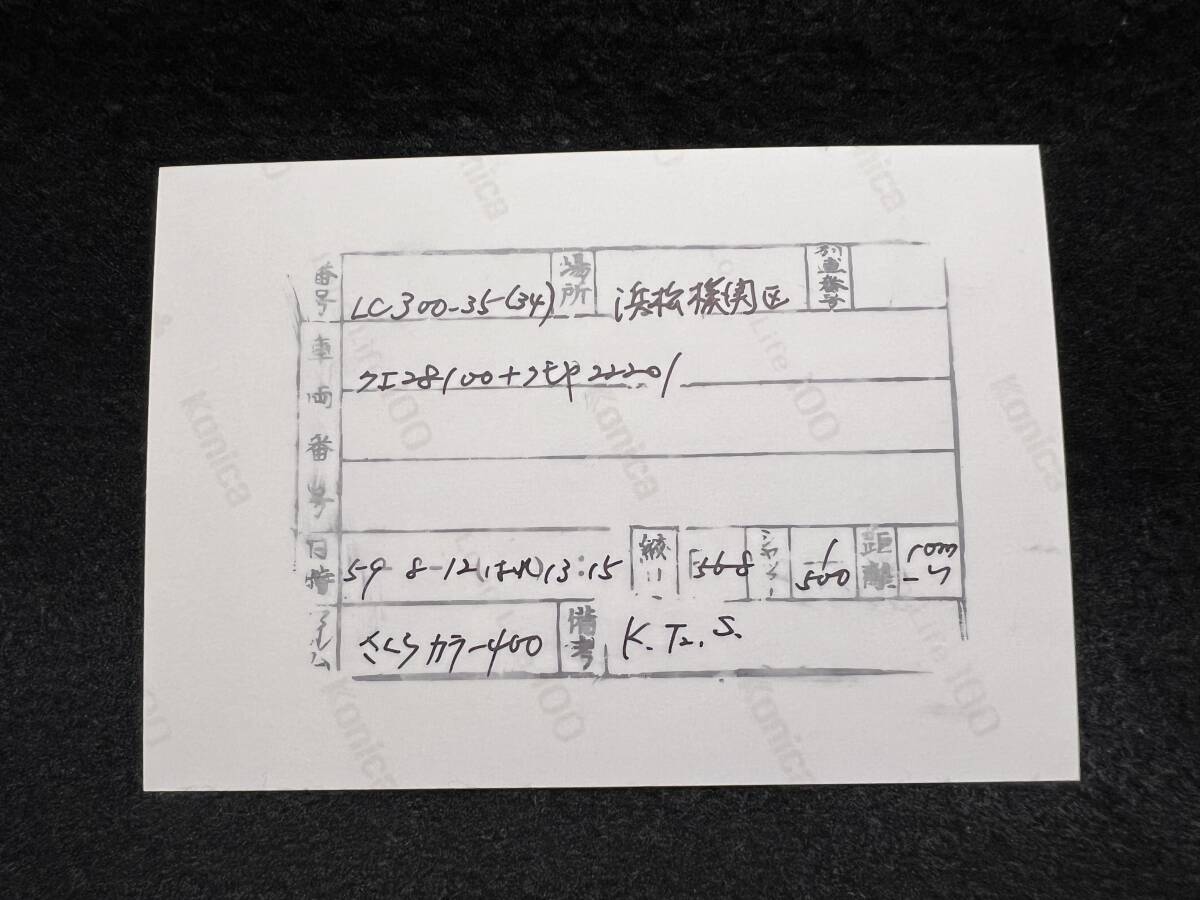 番号 LC300-35-(34) 場所 浜松機関区 列車番号
車両番号 クエ28100+クモヤ22201
日時 59 8-12(はれ)13:15 絞り F5.6-8 シャッター 1/500 距離 10m
フィルム さくらカラー400 備考 K.T2.S.
Konica
Konica
Life 100
Life 100
Konica
Konica
Konica
Life 100
Life 100
Konica
Konica